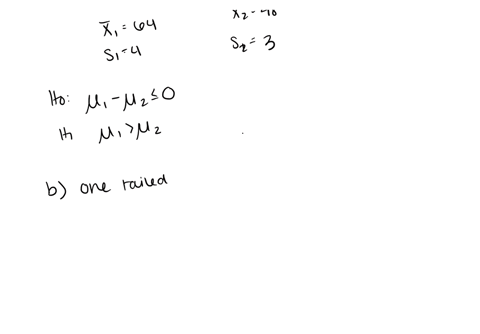 x̄₁ = 64
S₁ = 4 S₂ = 3
Ho: μ₁ - μ₂ ≤ 0
H1 μ₁ > μ₂
b) one tailed